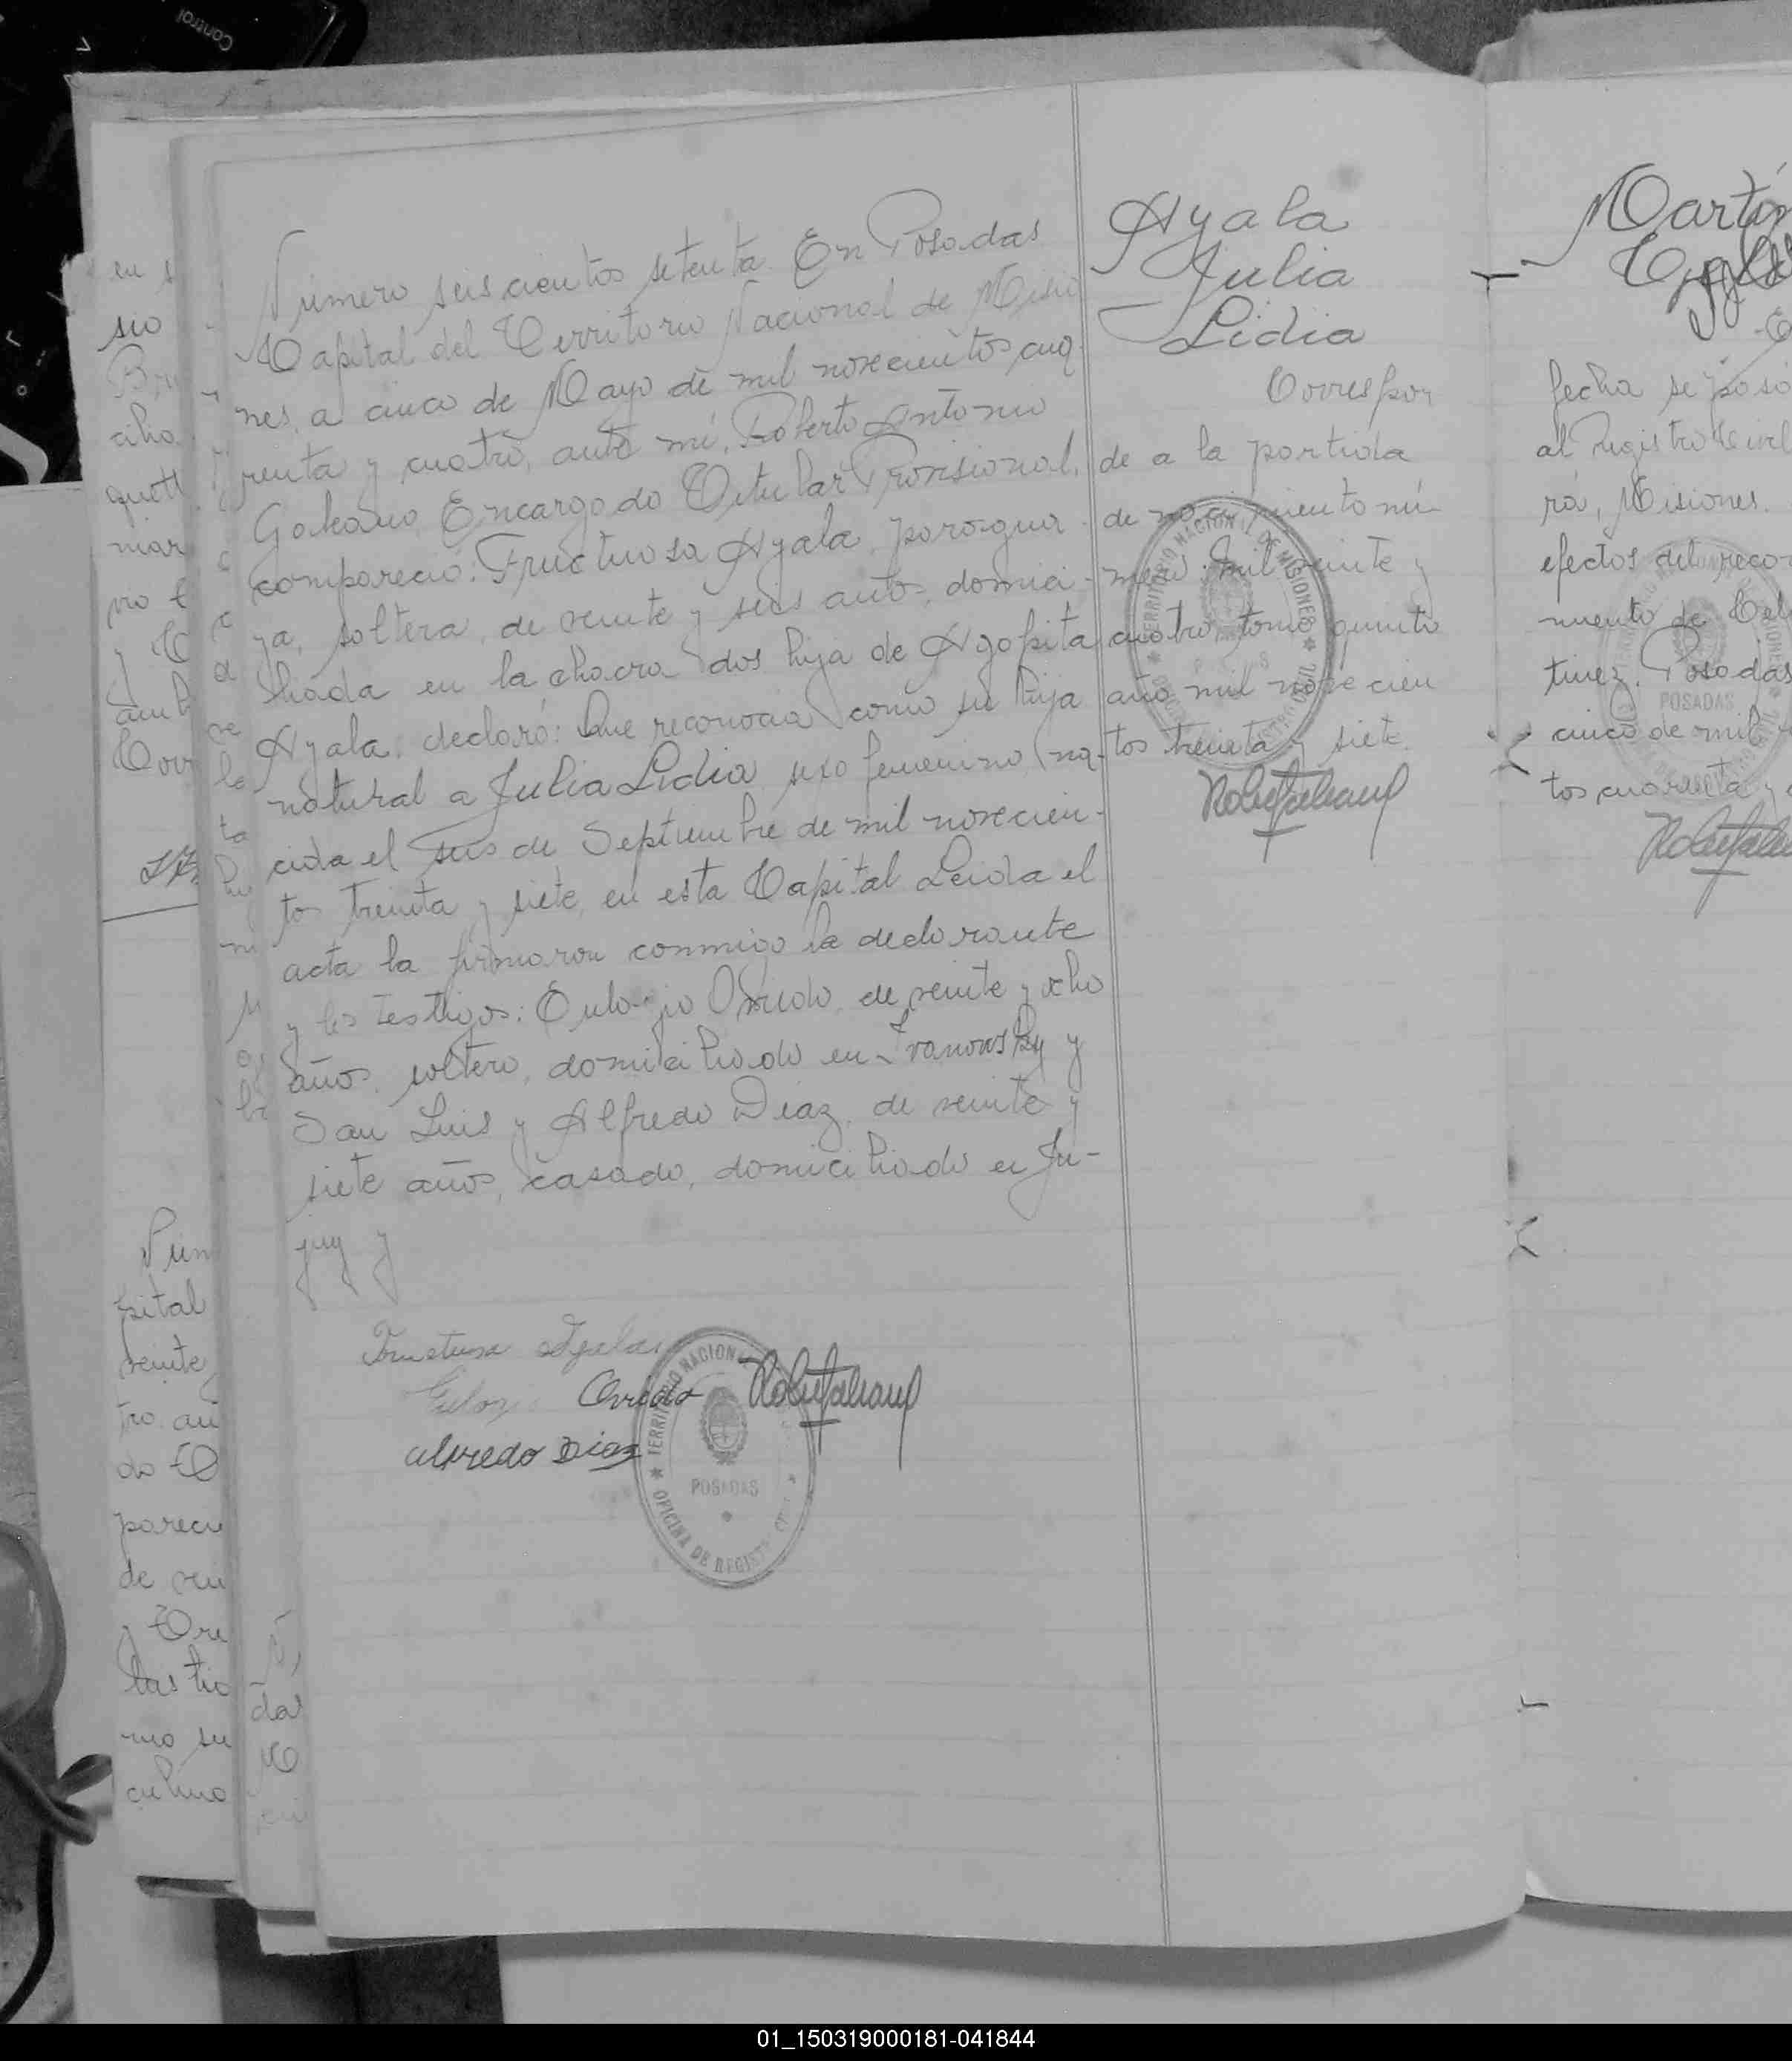 Número seiscientos setenta. En Posadas
Capital del Territorio Nacional de Misio
nes, a cinco de Mayo de mil novecientos cua
renta y cuatro, ante mí, Roberto Antonio
Galeano, Encargado Titular Provisional,
compareció: Fructuosa Ayala, paragua
ya, soltera, de veinte y seis años, domici-
liada en la chacra dos hija de Agapita
Ayala, declaró: Que reconocía como su hija
natural a Julia Lidia, sexo femenino, na-
cida el seis de Septiembre de mil novecien-
tos treinta y siete, en esta Capital Leida el
acta la firmaron conmigo la declarante
y los testigos: Eulogio Oviedo, de veinte y ocho
años, soltero, domiciliado en Ivanowsky y
San Luis y Alfredo Diaz, de veinte y
siete años, casado, domiciliado en Ju-
juy y
Fructuosa Ayala
Oviedo
Alfredo Diaz
TERRITORIO NACIONAL
POSADAS
OFICINA DE REGISTRO
Ayala
Julia
Lidia
Correspon
de a la partida
de nacimiento nú-
mero mil veinte y
cuatro, tomo quinto
año mil novecien
tos treinta y siete.
TERRITORIO NACIONAL DE MISIONES
Martín
fecha se pasó
al Registro Civil
rá, Misiones.
efectos del reco
miento de
tinez. Posadas
cinco de mil
tos cuarenta y
POSADAS
en s
sio
ciho
mar
Corr
Núm
pital
veinte
tro. an
do
pareció
de vei
das
Control
01_150319000181-041844